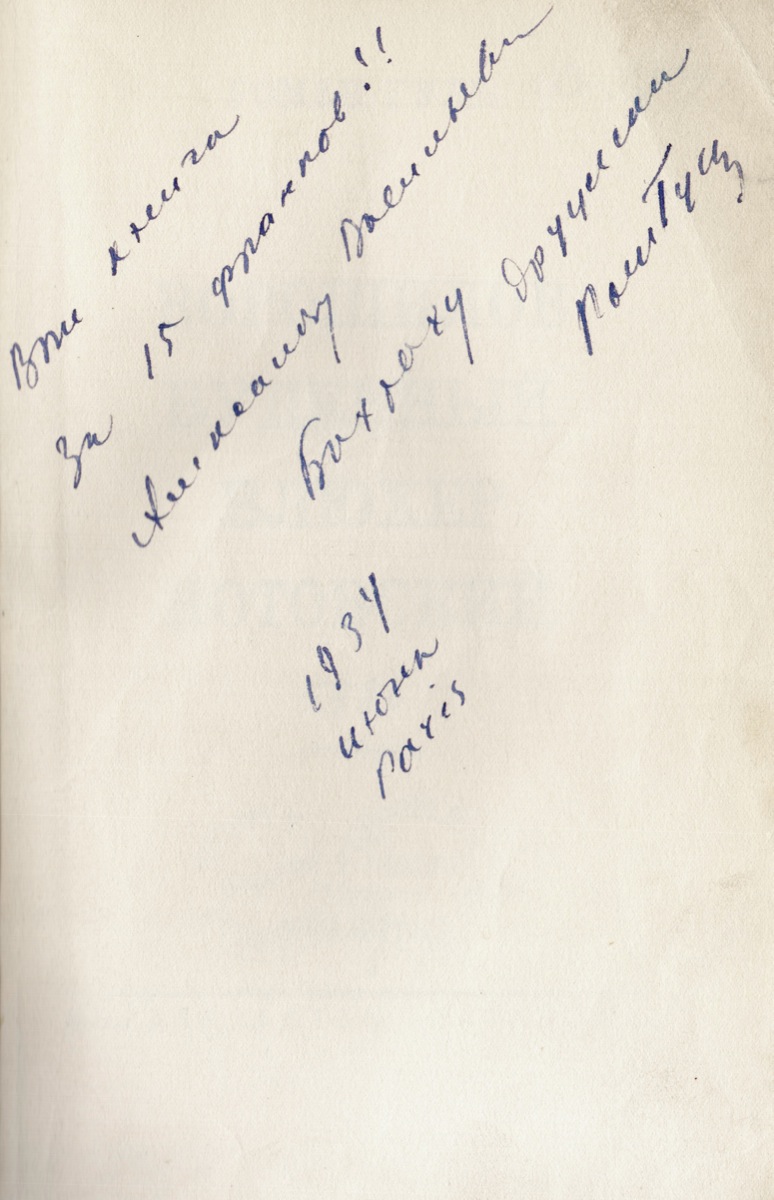 Вот книга
за 15 франков!!
Александру Васильевичу
Бахраху дружески
Роман Гуль
1934
июня
Paris